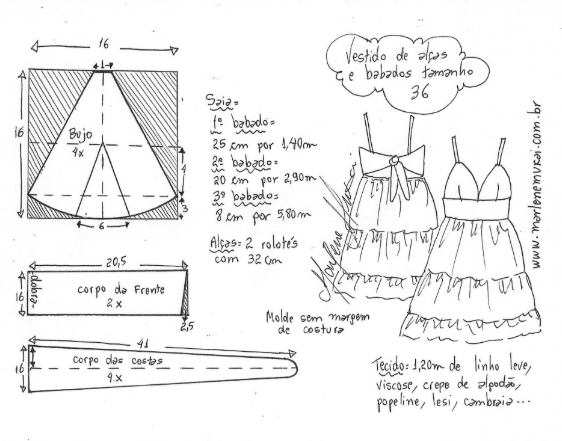 16
1
16
Bujo
4x
4
3
6
Vestido de alças
e babados tamanho
36
Saia=
1º babado=
25 cm por 1,40m
2º babado=
20 cm por 2,90m
3º babado=
8 cm por 5,80m
Alças= 2 rolotés
com 32 cm
www.marlenemurai.com.br
Marlene Mukai
20,5
16
dobra
corpo da Frente
2x
2,5
Molde sem margem
de costura
41
16
corpo das costas
4x
Tecido: 1,20m de linho leve,
viscose, crepe de algodão,
popeline, lesi, cambraia...